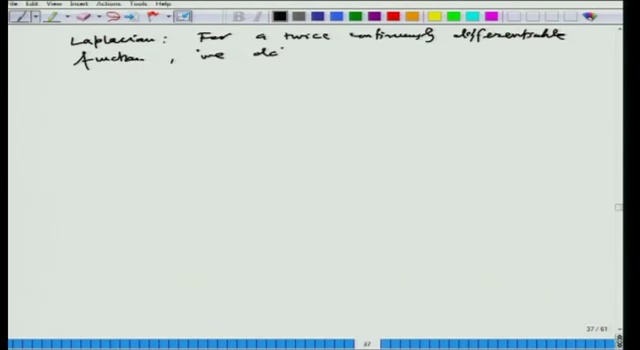 File Edit View Insert Actions Tools Help
Laplacian: For a twice continuously differentiable
function, we de
37 / 61
37